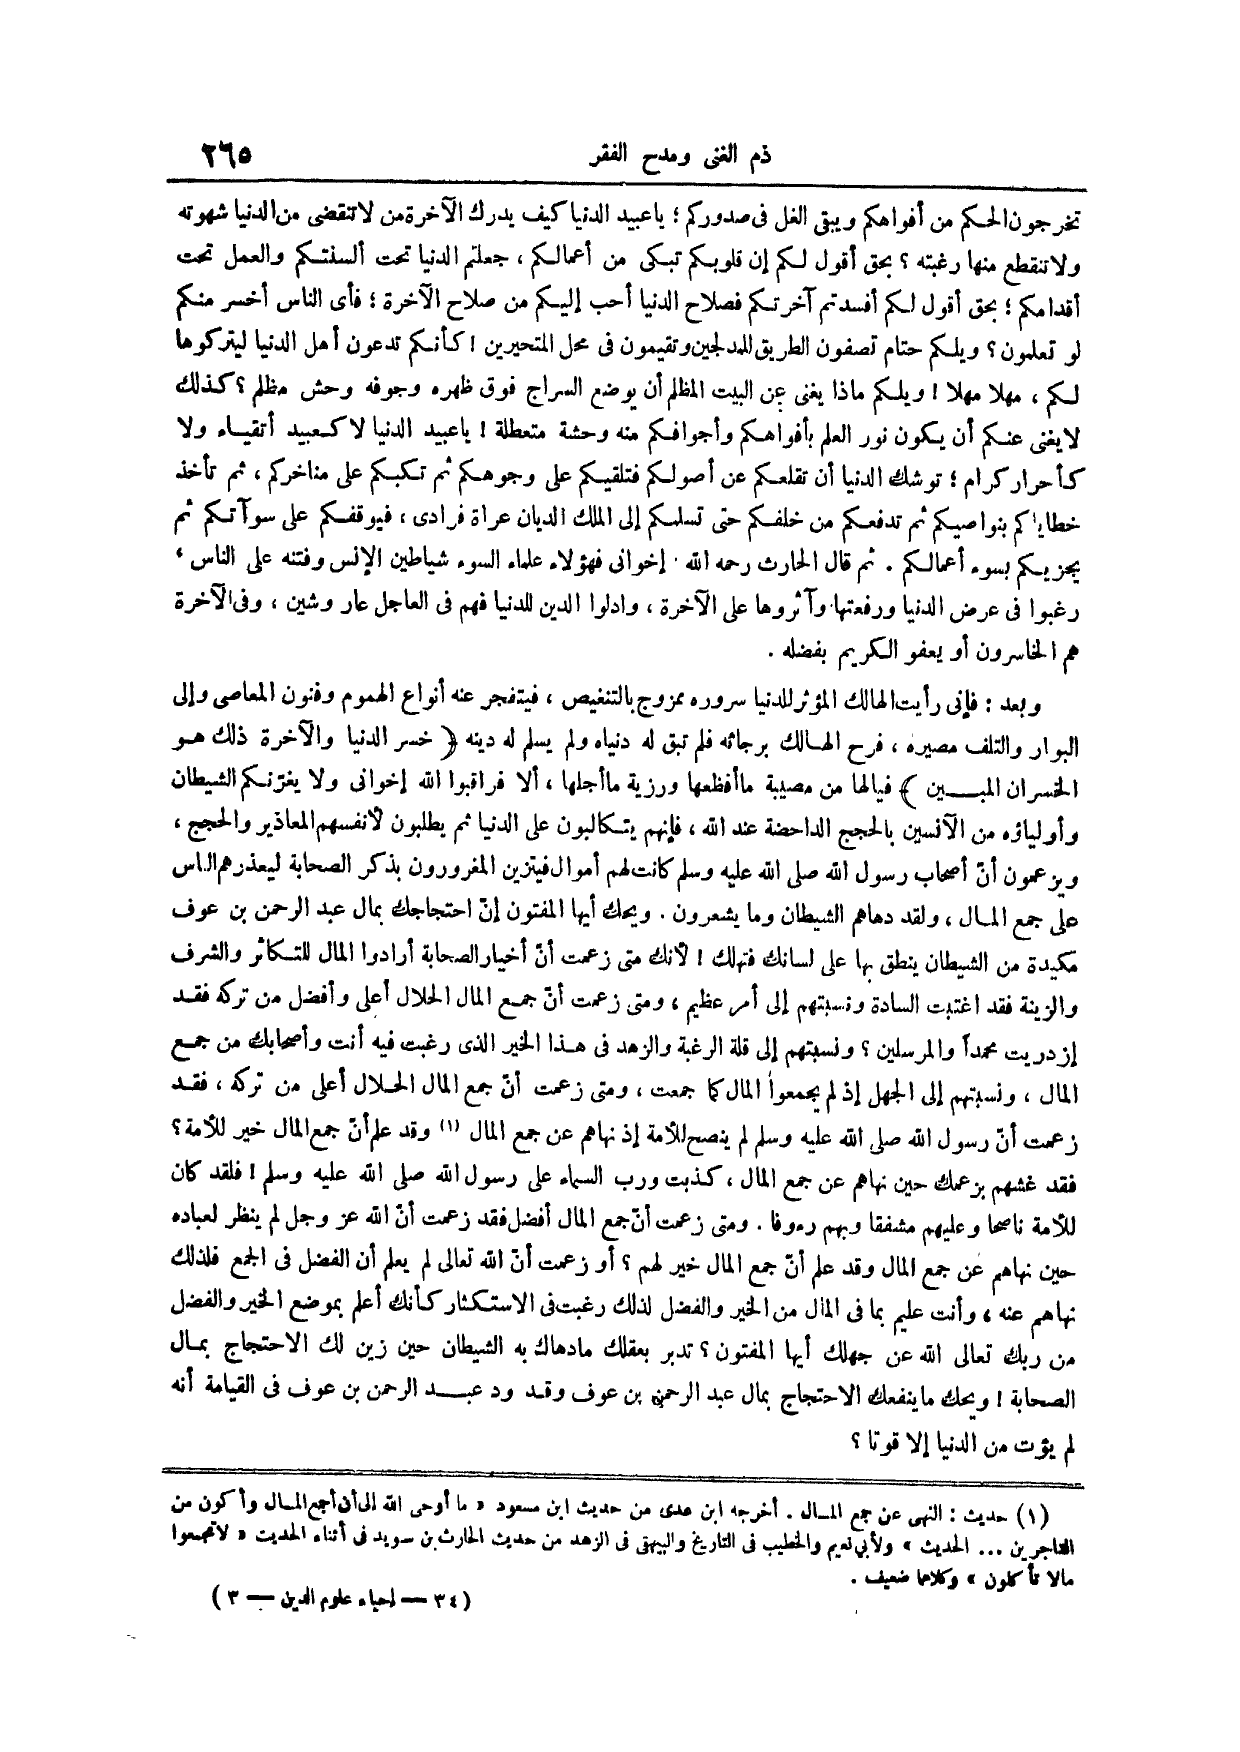 ذم الغنى ومدح الفقر ٢٦٥
تخرجون الحكم من أفواهكم ويبقى الغل فى صدوركم ؛ ياعبيد الدنيا كيف يدرك الآخرة من لا تنقضى من الدنيا شهوته
ولا تنقطع منها رغبته ؟ بحق أقول لكم إن قلوبكم تبكى من أعمالكم ، جعلتم الدنيا تحت ألسنتكم والعمل تحت
أقدامكم ؛ بحق أقول لكم أفسدتم آخرتكم فصلاح الدنيا أحب إليكم من صلاح الآخرة ؛ فأى الناس أخسر منكم
لو تعلمون ؟ ويلكم حتام تصفون الطريق للمدلجين وتقيمون فى محل المتحيرين ! كأنكم تدعون أهل الدنيا ليتركوها
لكم ، مهلا مهلا ! ويلكم ماذا يغنى عن البيت المظلم أن يوضع السراج فوق ظهره وجوفه وحش مظلم ؟ كذلك
لايغنى عنكم أن يكون نور العلم بأفواهكم وأجوافكم منه وحشة متعطلة ! ياعبيد الدنيا لا كعبيد أتقياء ولا
كأحرار كرام ؛ توشك الدنيا أن تقلعكم عن أصولكم فتلقيكم على وجوهكم ثم تكبكم على مناخركم ، ثم تأخذ
خطاياكم بنواصيكم ثم تدفعكم من خلفكم حتى تسلمكم إلى الملك الديان عراة فرادى ، فيوقفكم على سوآتكم ثم
يجزيكم بسوء أعمالكم . ثم قال الحارث رحمه الله . إخوانى فهؤلاء علماء السوء شياطين الإنس وفتنة على الناس ،
رغبوا فى عرض الدنيا ورفعتها وآثروها على الآخرة ، وادلوا الدين للدنيا فهم فى العاجل عار وشين ، وفى الآخرة
هم الخاسرون أو يعفو الكريم بفضله .
وبعد : فإنى رأيت الهالك المؤثر للدنيا سروره ممزوج بالتنغيص ، فيتفجر عنه أنواع الهموم وفنون المعاصى وإلى
البوار والتلف مصيره ، فرح الهالك برجائه فلم تبق له دنياه ولم يسلم له دينه ﴿ خسر الدنيا والآخرة ذلك هو
الخسران المبين ﴾ فيالها من مصيبة ماأفظعها ورزية ماأجلها ، ألا فراقبوا الله إخوانى ولا يغرّنكم الشيطان
وأولياؤه من الآنسين بالحجج الداحضة عند الله ، فإنهم يتكالبون على الدنيا ثم يطلبون لأنفسهم المعاذير والحجج ،
ويزعمون أنّ أصحاب رسول الله صلى الله عليه وسلم كانت لهم أموال فيتزين المغرورون بذكر الصحابة ليعذرهم الناس
على جمع المال ، ولقد دهاهم الشيطان وما يشعرون . ويحك أيها المفتون إنّ احتجاجك بمال عبد الرحمن بن عوف
مكيدة من الشيطان ينطق بها على لسانك فتهلك ! لأنك متى زعمت أنّ أخيار الصحابة أرادوا المال للتكاثر والشرف
والزينة فقد اغتبت السادة ونسبتهم إلى أمر عظيم ، ومتى زعمت أنّ جمع المال الحلال أعلى وأفضل من تركه فقد
ازدريت محمداً والمرسلين ؟ ونسبتهم إلى قلة الرغبة والزهد فى هذا الخير الذى رغبت فيه أنت وأصحابك من جمع
المال ، ونسبتهم إلى الجهل إذ لم يجمعوا المال كما جمعت ، ومتى زعمت أنّ جمع المال الحلال أعلى من تركه ، فقد
زعمت أنّ رسول الله صلى الله عليه وسلم لم ينصح للأمة إذ نهاهم عن جمع المال (١) وقد علم أنّ جمع المال خير للأمة ؟
فقد غشهم بزعمك حين نهاهم عن جمع المال ، كذبت ورب السماء على رسول الله صلى الله عليه وسلم ! فلقد كان
للأمة ناصحا وعليهم مشفقا وبهم رءوفا . ومتى زعمت أنّ جمع المال أفضل فقد زعمت أنّ الله عز وجل لم ينظر لعباده
حين نهاهم عن جمع المال وقد علم أنّ جمع المال خير لهم ؟ أو زعمت أنّ الله تعالى لم يعلم أن الفضل فى الجمع فلذلك
نهاهم عنه ، وأنت عليم بما فى المال من الخير والفضل لذلك رغبت فى الاستكثار كأنك أعلم بموضع الخير والفضل
من ربك تعالى الله عن جهلك أيها المفتون ؟ تدبر بعقلك مادهاك به الشيطان حين زين لك الاحتجاج بمال
الصحابة ! ويحك ماينفعك الاحتجاج بمال عبد الرحمن بن عوف وقد ود عبد الرحمن بن عوف فى القيامة أنه
لم يؤت من الدنيا إلا قوتا ؟
(١) حديث : النهى عن جمع المال . أخرجه ابن عدى من حديث ابن مسعود « ما أوحى الله إلى أن أجمع المال وأكون من
التاجرين ... الحديث » ولأبى نعيم والخطيب فى التاريخ والبيهقى فى الزهد من حديث الحارث بن سويد فى أثناء الحديث « لاتجمعوا
مالا تأكلون » وكلاهما ضعيف .
(٣٤ — إحياء علوم الدين — ٣)